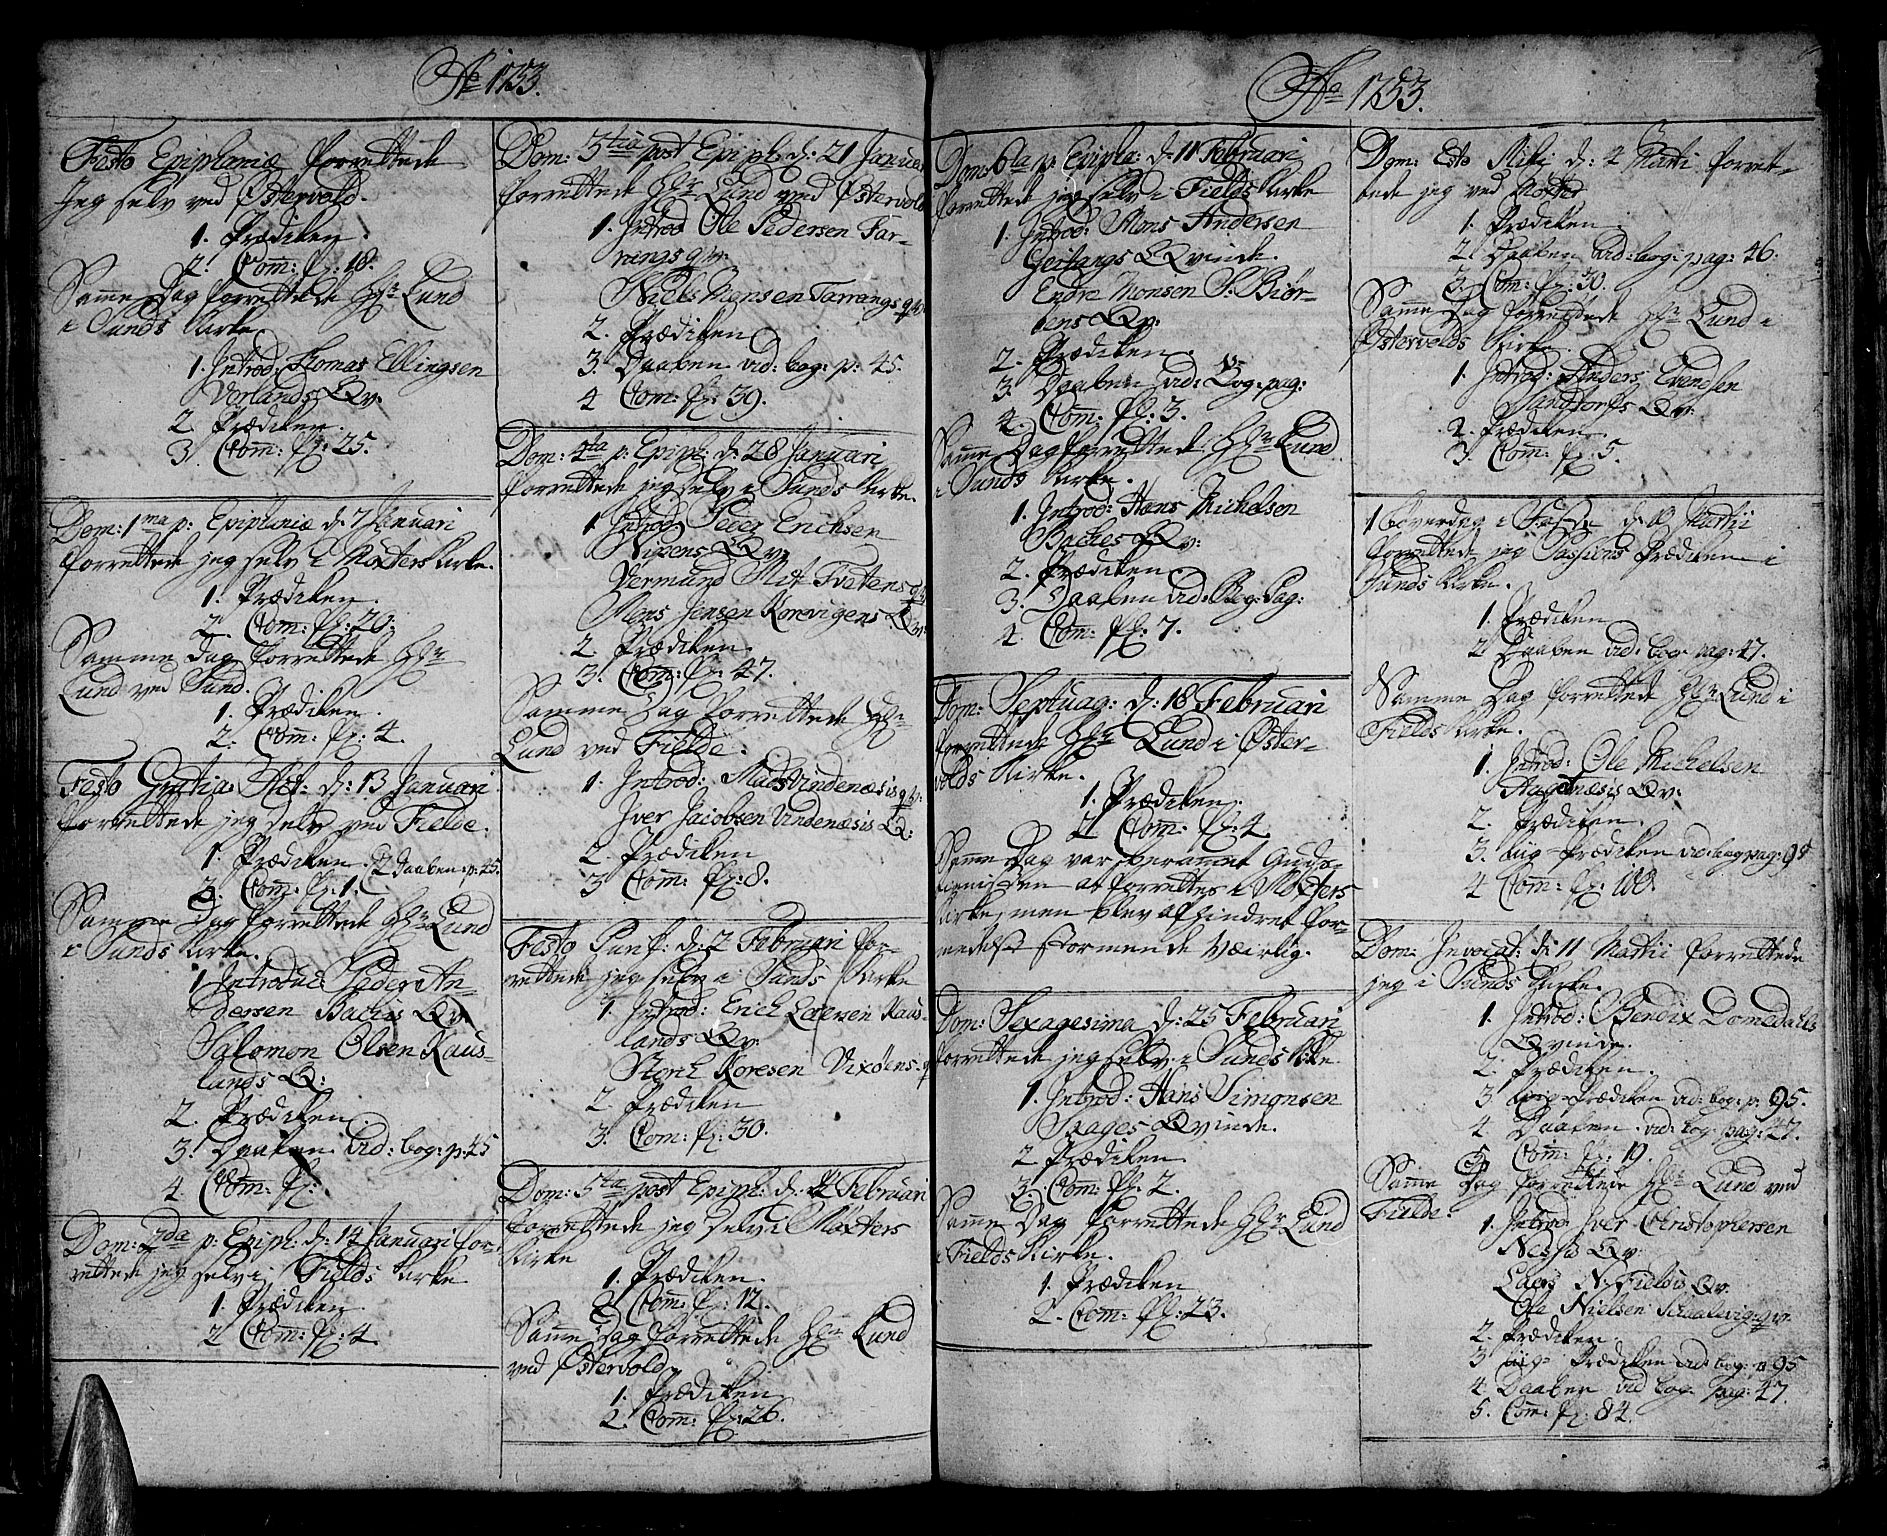 Ao 1753.
Festo Epiphaniæ forrettede
Jeg selv ved Østervold.
1. Prædiken.
2. Com: p: 18.
Samme Dag forrettede Hr Lund
i Sunds Kirke
1. Introd: Thomas Ellingsen
Vorlands Qv.
2. Prædiken.
3. Com: p: 25.
Dom: 1ma p: Epiphaniæ d: 7 Januari
forrettede jeg selv i Møxters Kirke.
1. Prædiken.
2. Com: p: 20.
Samme Dag forrettede Hr
Lund ved Sund.
1. Prædiken.
2. Com: p: 4.
Festo Gratia: Act: d: 13 Januari
forrettede jeg selv ved Fielde.
1. Prædiken. 2 Daaben: p: 45.
3. Com: p: 1.
Samme Dag forrettede Hr Lund
i Sunds Kirke.
1 Introduc Peder An-
dersen Bachis Qv.
Salomon Olsen Kaus-
lands Q:
2. Prædiken.
3. Daaben vid: bog: p: 45
4. Com: p:
Dom: 2da p: Epiph: d: 14 Januari for-
rettede jeg selv i Fields Kirke
1. Prædiken.
2 Com: p: 4
Dom: 3tia post Epiph: d: 21 Januar
forrettede Hr Lund ved Østervold
1. Introd Ole Pedersen Tar-
rangs qv.
Niels Monsen Tarrangs qv.
2. Prædiken
3. Daaben vid: bog: p: 45.
4 Com: p: 39.
Dom: 4ta p: Epiph: d: 28 Januari
forrettede jeg selv i Sunds Kirke.
1 Introd. Peder Erichsen
Nipens Qv.
Vermund Tvetens qv.
Mons Jensen Korsvigens Qv.
2 Prædiken.
3. Com: p: 47.
Samme Dag forrettede Hr
Lund ved Fielde.
1. Introd: Mads Vindenæsis qv.
Iver Jacobsen Vindenæsis Q:
2. Prædiken
3 Com: p: 8.
Festo Purif: d: 2 Februari for-
rettede jeg selv i Sunds Kirke
1. Introd: Erich Kaus-
lands Qv.
2. Prædiken
3. Com: p: 30.
Dom: 5ta post Epiph: d: 4 Februari
forrettede jeg selv i Møxters
Kirke
1. Prædiken.
2 Com: p: 12.
Samme Dag forrettede Hr Lund
ved Østervold
1. Prædiken
2. Com: p: 26.
Ao 1753.
Dom: 6ta p: Epipha: d: 11 Februari
forrettede jeg selv i Fields Kirke
1. Introd: Mons Andersen
Qvinde.
Endre Monsen S. Biør-
kens Qv.
2. Prædiken.
3. Daaben vid: Bog: pag:
4. Com: p: 3.
Samme Dag forrettede Hr Lund
i Sunds Kirke.
1. Introd: Hans Michelsen
Baches Qv:
2. Prædiken.
3. Daaben vid: Bog: Pag:
4. Com: p: 7.
Dom: Septuag: d: 18 Februari
forrettede Hr Lund i Øster-
volds Kirke.
1. Prædiken.
2 Com: p: 4
Samme Dag var berammet Guds-
tienisten at forrettes i Møxters
Kirke, men blev afhindret for-
medelst stormende Væirlig.
Dom: Sexagesima d: 25 Februari
forrettede jeg selv i Sunds Kirke
1. Introd: Hans Simonsen
Skages Qvinde.
2 Prædiken
3. Com: p: 2.
Samme Dag forrettede Hr Lund
i Fields Kirke.
1. Prædiken
2. Com: p: 23.
Dom: Esto Mihi d: 4 Marti forret-
tede jeg ved Møxter
1. Prædiken.
2 Daaben vid: bog: pag: 46.
3. Com: p: 30.
Samme Dag forrettede Hr Lund i
Østervolds Kirke.
1. Introd: Anders Evendsen
Qv.
2. Prædiken.
3. Com: p: 5.
i Faste d: Martii
forrettede jeg Passions Prædiken i
Sunds Kirke.
1. Prædiken
2 Daaben vid: bog: pag: 47.
Samme Dag forrettede Hr Lund i
Fields Kirke.
1. Introd: Ole Michelsen
Hagenæsis Qv:
2. Prædiken.
3. Prædiken vid: bog pag: 95
4 Com: p:
Dom: Invocat: d: 11 Martii forrettede
jeg i Sunds Kirke.
1. Introd: Bendix Domedals
Qvinde.
2. Prædiken.
3 Prædiken vid: bog: p: 95.
4 Daaben. vid: bog: pag: 47.
5 Com: p: 19.
Samme Dag forrettede Hr Lund ved
Fielde:
1. Introd Iver Christophersen
Nessis Qv.
Lars N. Fieldis Qv.
Ole Nielsen qv.
2. Prædiken.
3 Prædiken vid: bog: p 95
4. Daaben vid bog: pag: 47.
5. Com: p: 84.